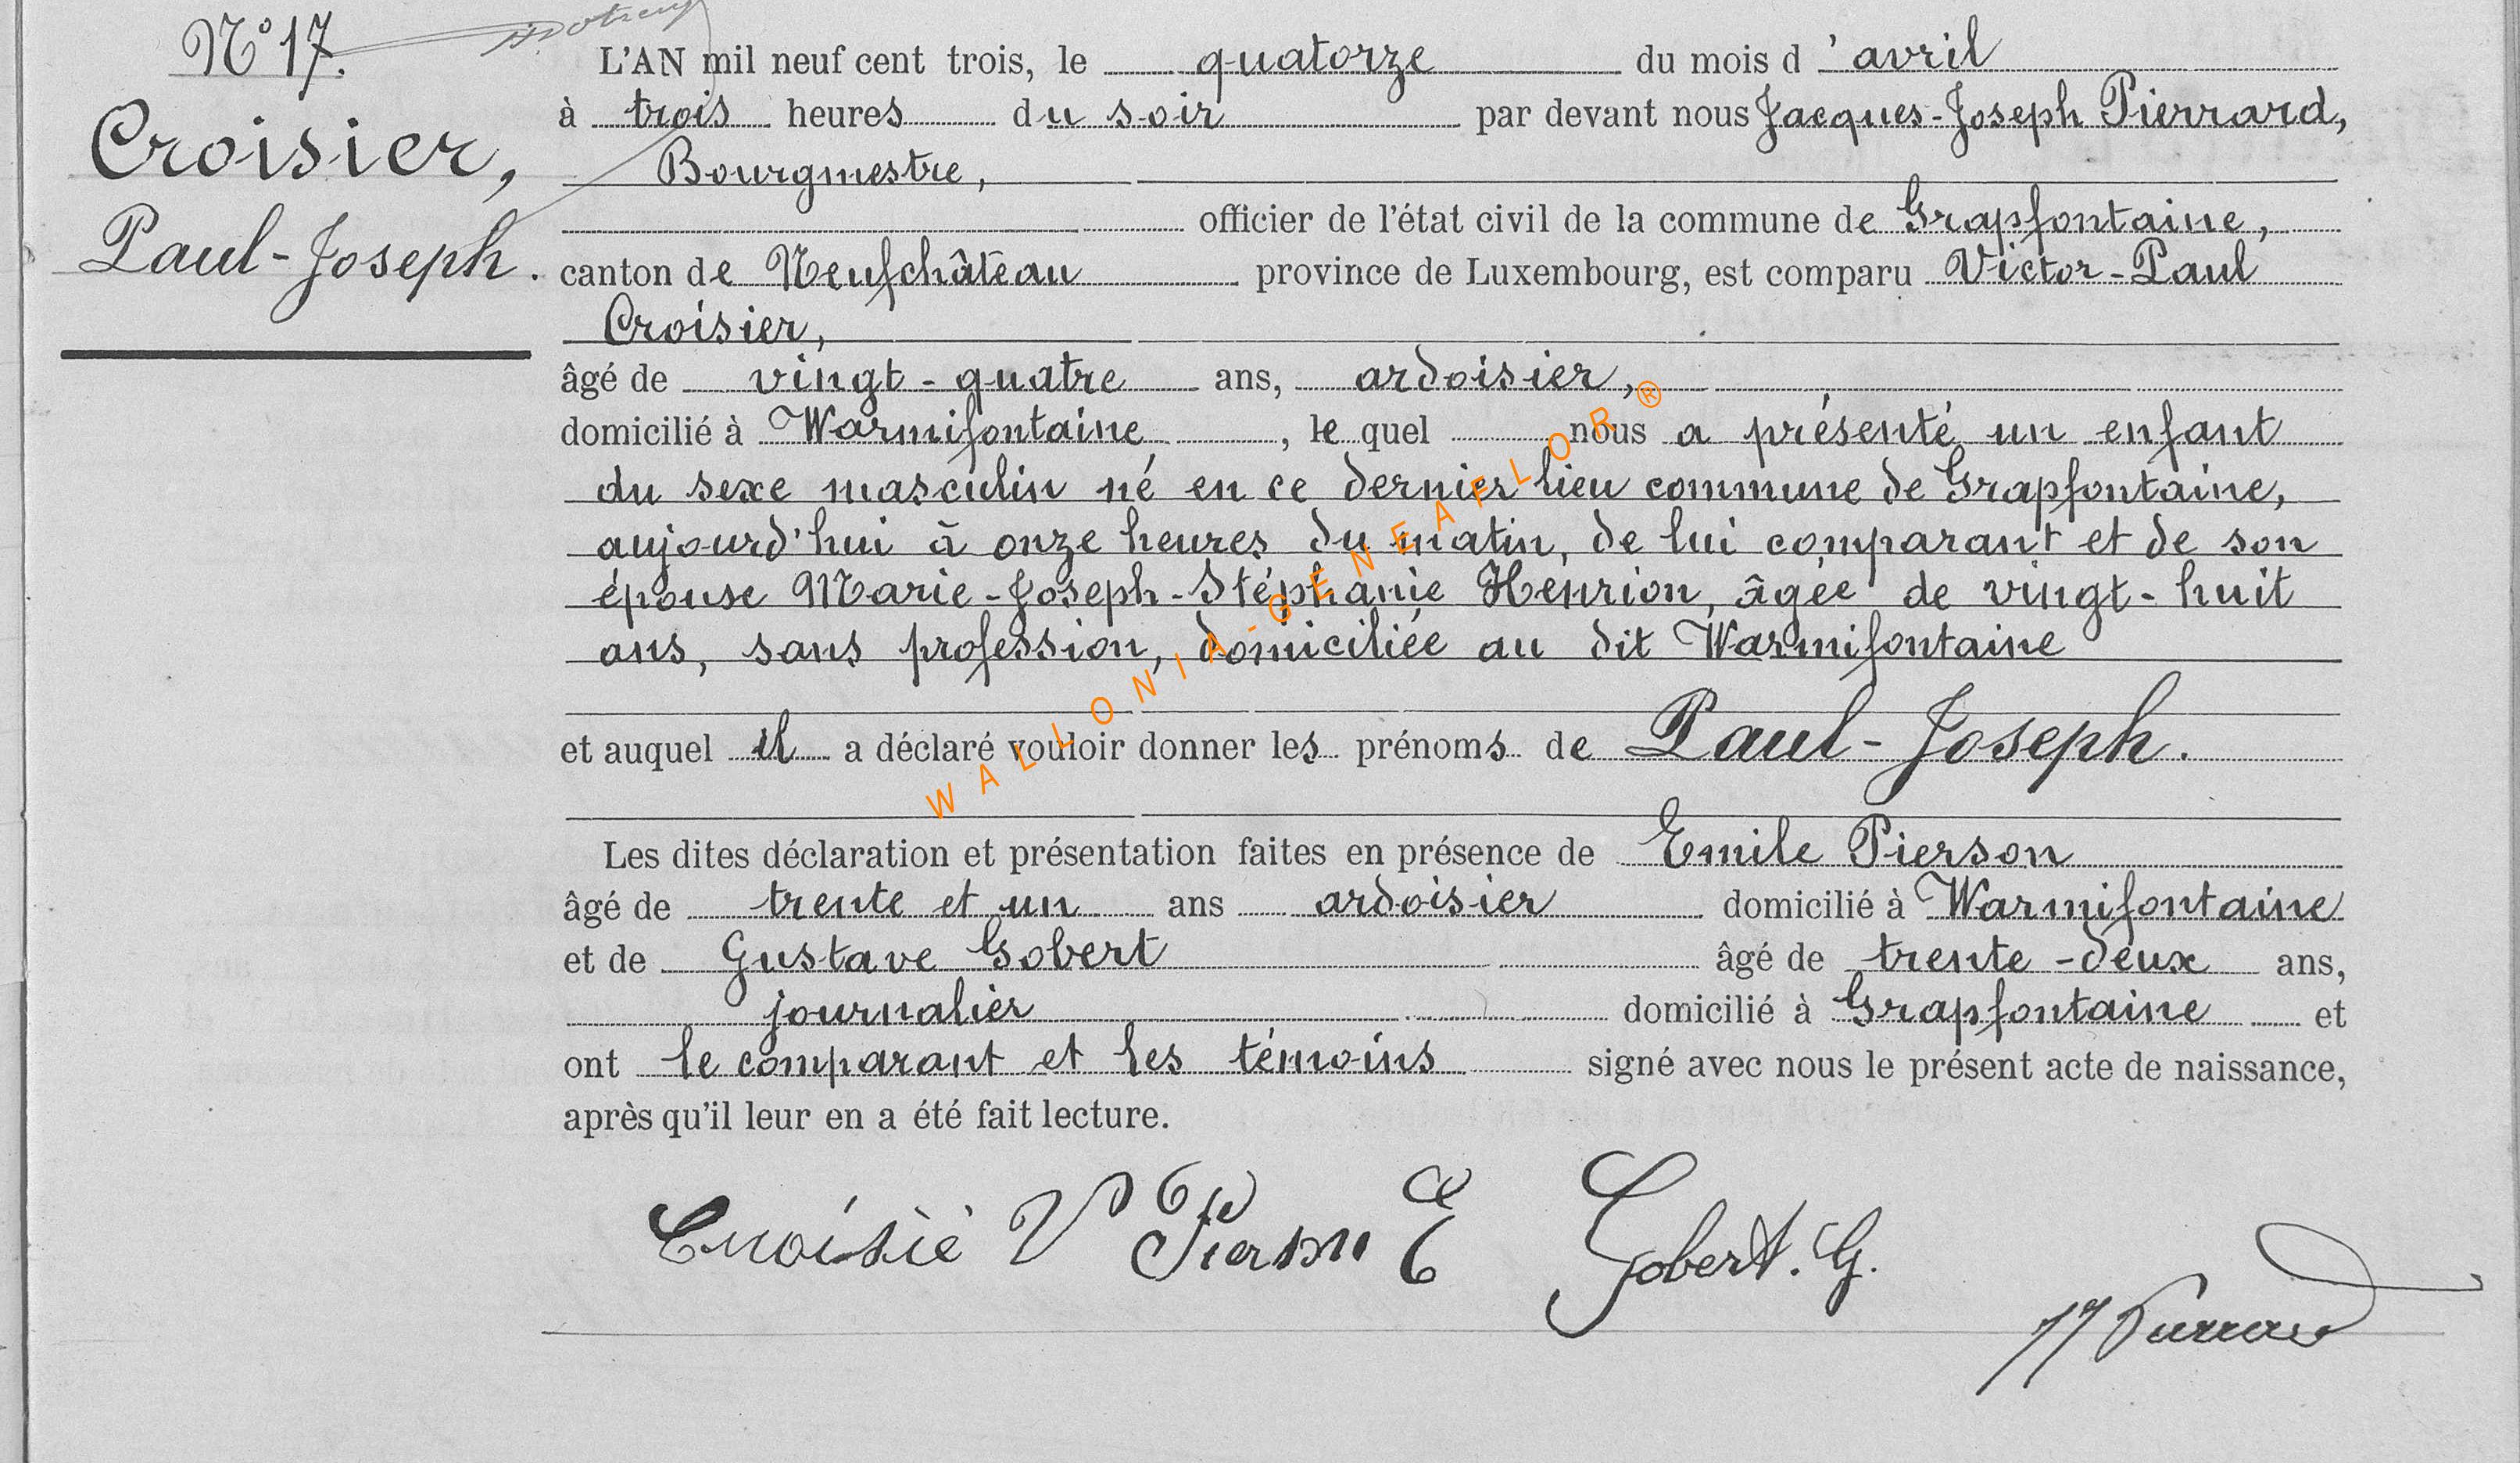 N° 17.
Croisier,
Paul-Joseph.
L'AN mil neuf cent trois, le quatorze du mois d'avril
à trois heures du soir par devant nous Jacques-Joseph Pierrard,
Bourgmestre,
officier de l'état civil de la commune de Grapfontaine,
canton de Neufchâteau province de Luxembourg, est comparu Victor-Paul
Croisier,
âgé de vingt-quatre ans, ardoisier,
domicilié à Warmifontaine, le quel nous a présenté un enfant
du sexe masculin né en ce dernier lieu commune de Grapfontaine,
aujourd'hui à onze heures du matin, de lui comparant et de son
épouse Marie-Joseph-Stéphanie Henrion, âgée de vingt-huit
ans, sans profession, domiciliée au dit Warmifontaine
et auquel il a déclaré vouloir donner les prénoms de Paul-Joseph.
Les dites déclaration et présentation faites en présence de Emile Pierson
âgé de trente et un ans ardoisier domicilié à Warmifontaine
et de Gustave Gobert âgé de trente-deux ans,
journalier domicilié à Grapfontaine et
ont le comparant et les témoins signé avec nous le présent acte de naissance,
après qu'il leur en a été fait lecture.
Croisié V Pierson E Gobert. G.
JJ Pierrard
WALLONIA-GENEAFLOR®